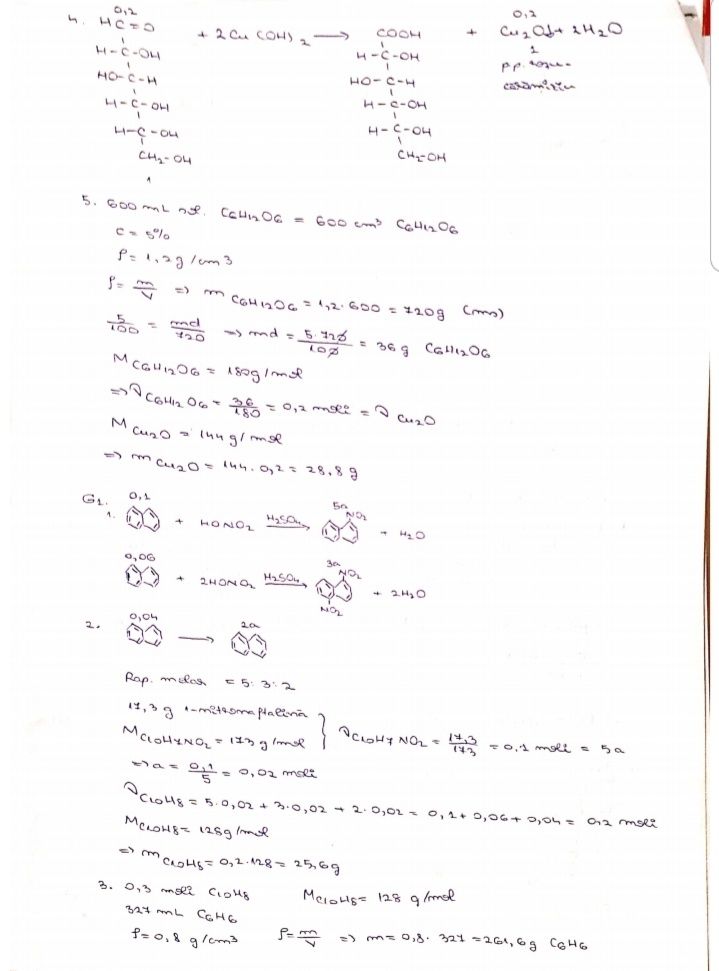 4. HC=O + 2Cu(OH)2 → COOH + Cu2O↓ + 2H2O
0,2 0,2
H-C-OH H-C-OH 1
HO-C-H HO-C-H p.p. roșu-
H-C-OH H-C-OH cărămiziu
H-C-OH H-C-OH
CH2-OH CH2-OH
1
5. 600 mL sol. C6H12O6 = 600 cm3 C6H12O6
C = 5%
ρ = 1,2g/cm3
ρ = m/V => m C6H12O6 = 1,2·600 = 720g (ms)
5/100 = md/720 => md = 5·720/100 = 36 g C6H12O6
M C6H12O6 = 180g/mol
=> ν C6H12O6 = 36/180 = 0,2 moli = ν Cu2O
M Cu2O = 144 g/mol
=> m Cu2O = 144·0,2 = 28,8 g
G1. 0,1 5a
1. + HONO2 H2SO4→ NO2 + H2O
0,06 3a
+ 2HONO2 H2SO4→ NO2 + 2H2O
NO2
0,04 2a
2. →
Rap. molar = 5:3:2
17,3 g 1-nitronaftalină
M C10H7NO2 = 173 g/mol } ν C10H7NO2 = 17,3/173 = 0,1 moli = 5a
=> a = 0,1/5 = 0,02 moli
ν C10H8 = 5·0,02 + 3·0,02 + 2·0,02 = 0,1 + 0,06 + 0,04 = 0,2 moli
M C10H8 = 128g/mol
=> m C10H8 = 0,2·128 = 25,6g
3. 0,3 moli C10H8 M C10H8 = 128 g/mol
327 mL C6H6
ρ = 0,8 g/cm3 ρ = m/V => m = 0,8·327 = 261,6g C6H6